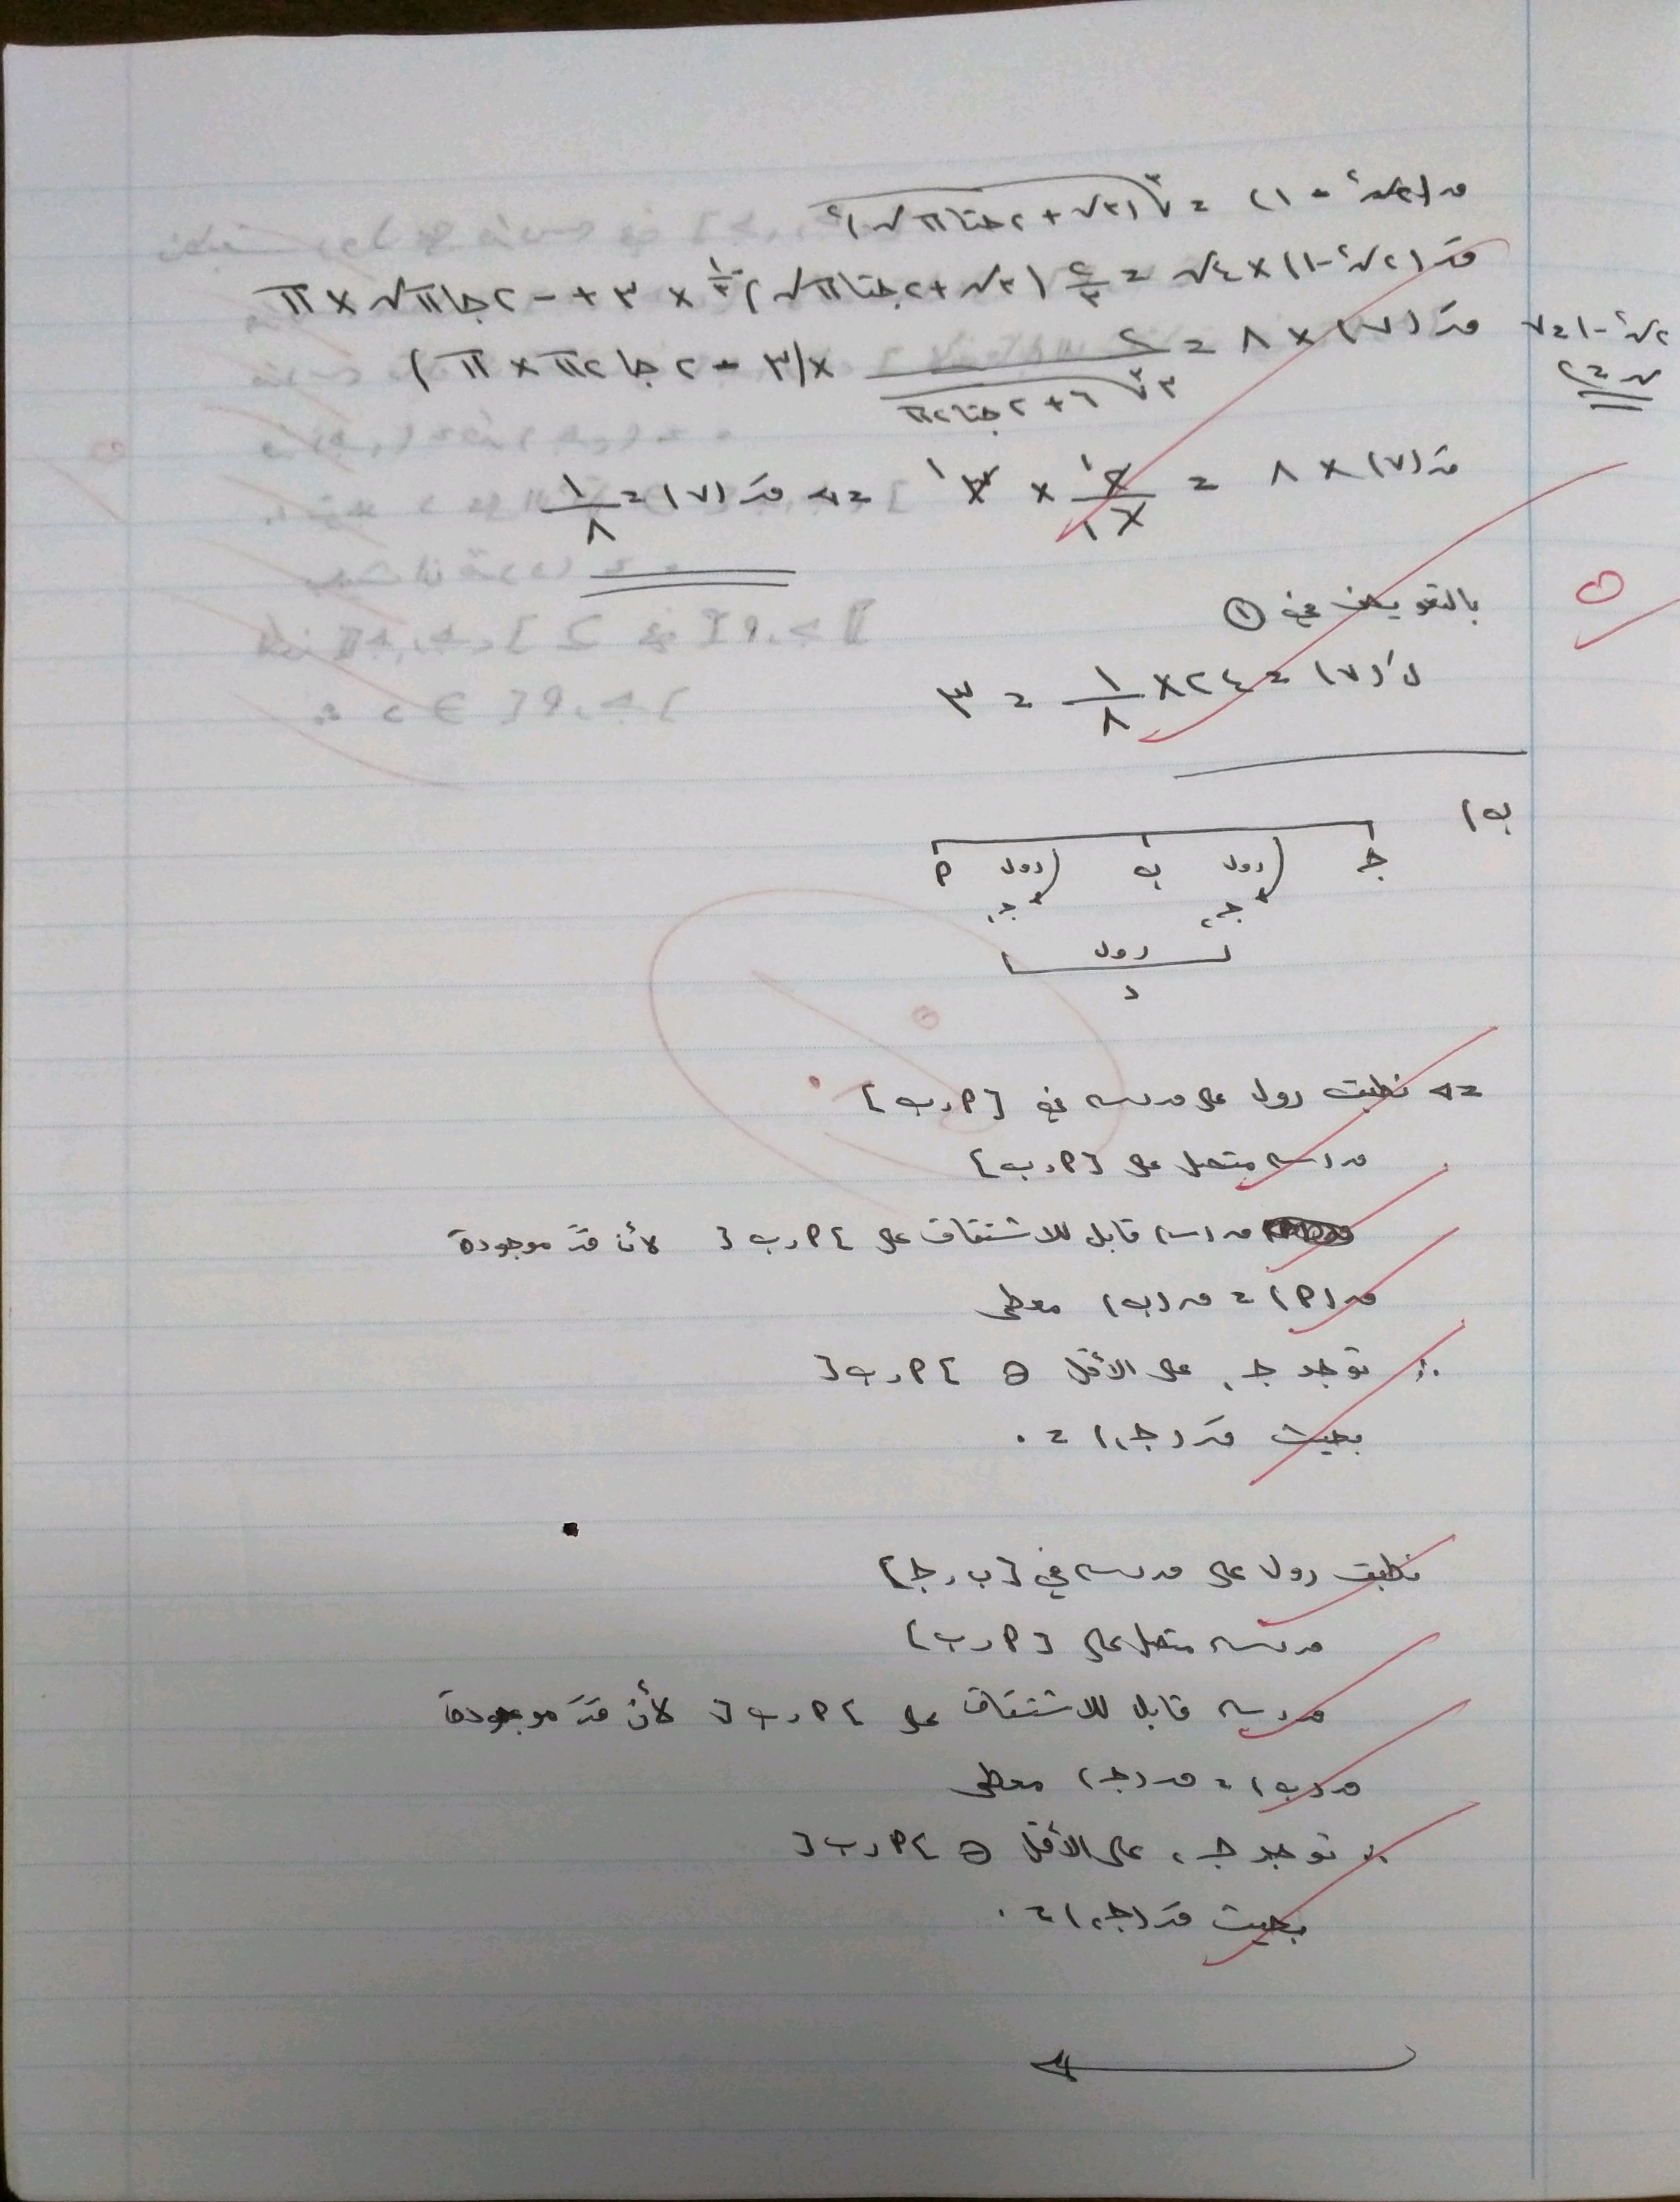 ق(٢س٢ - ١) = ٣√(٣س + ٢جتاπس)٢
قَ(٢س٢-١)×٤س = ٢/٣ (٣س+٢جتاπس)-١/٣ × ٣ + -٢جاπس × π
قَ(٧) × ٨ = ٢/(٣ ٣√٦+٢جتا٢π) × (٣ - ٢جا٢π × π)
٢س٢-١=٧
س=٢
قَ(٧) × ٨ = ٢١/٢١ × ٣ ١ => قَ(٧) = ١/٨
بالتعويض في ①
لَ(٧) = ٢٤ × ١/٨ = ٣
ب)
جـ رول ب رول P
جـ٢ جـ١
رول
د
=> نطبق رول على ق(س) في [P، ب]
ق(س) متصل على [P، ب]
ق(س) قابل للاشتقاق على ]P، ب[ لأن قَ موجودة
ق(P) = ق(ب) معطى
∴ توجد جـ١ على الأقل ∋ ]P، ب[
بحيث قَ(جـ١) = ٠
نطبق رول على ق(س) في [ب، جـ]
ق(س) متصل على [P، ب]
ق(س) قابل للاشتقاق على ]P، ب[ لأن قَ موجودة
ق(ب) = ق(جـ) معطى
∴ توجد جـ٢ على الأقل ∋ ]P، ب[
بحيث قَ(جـ٢) = ٠